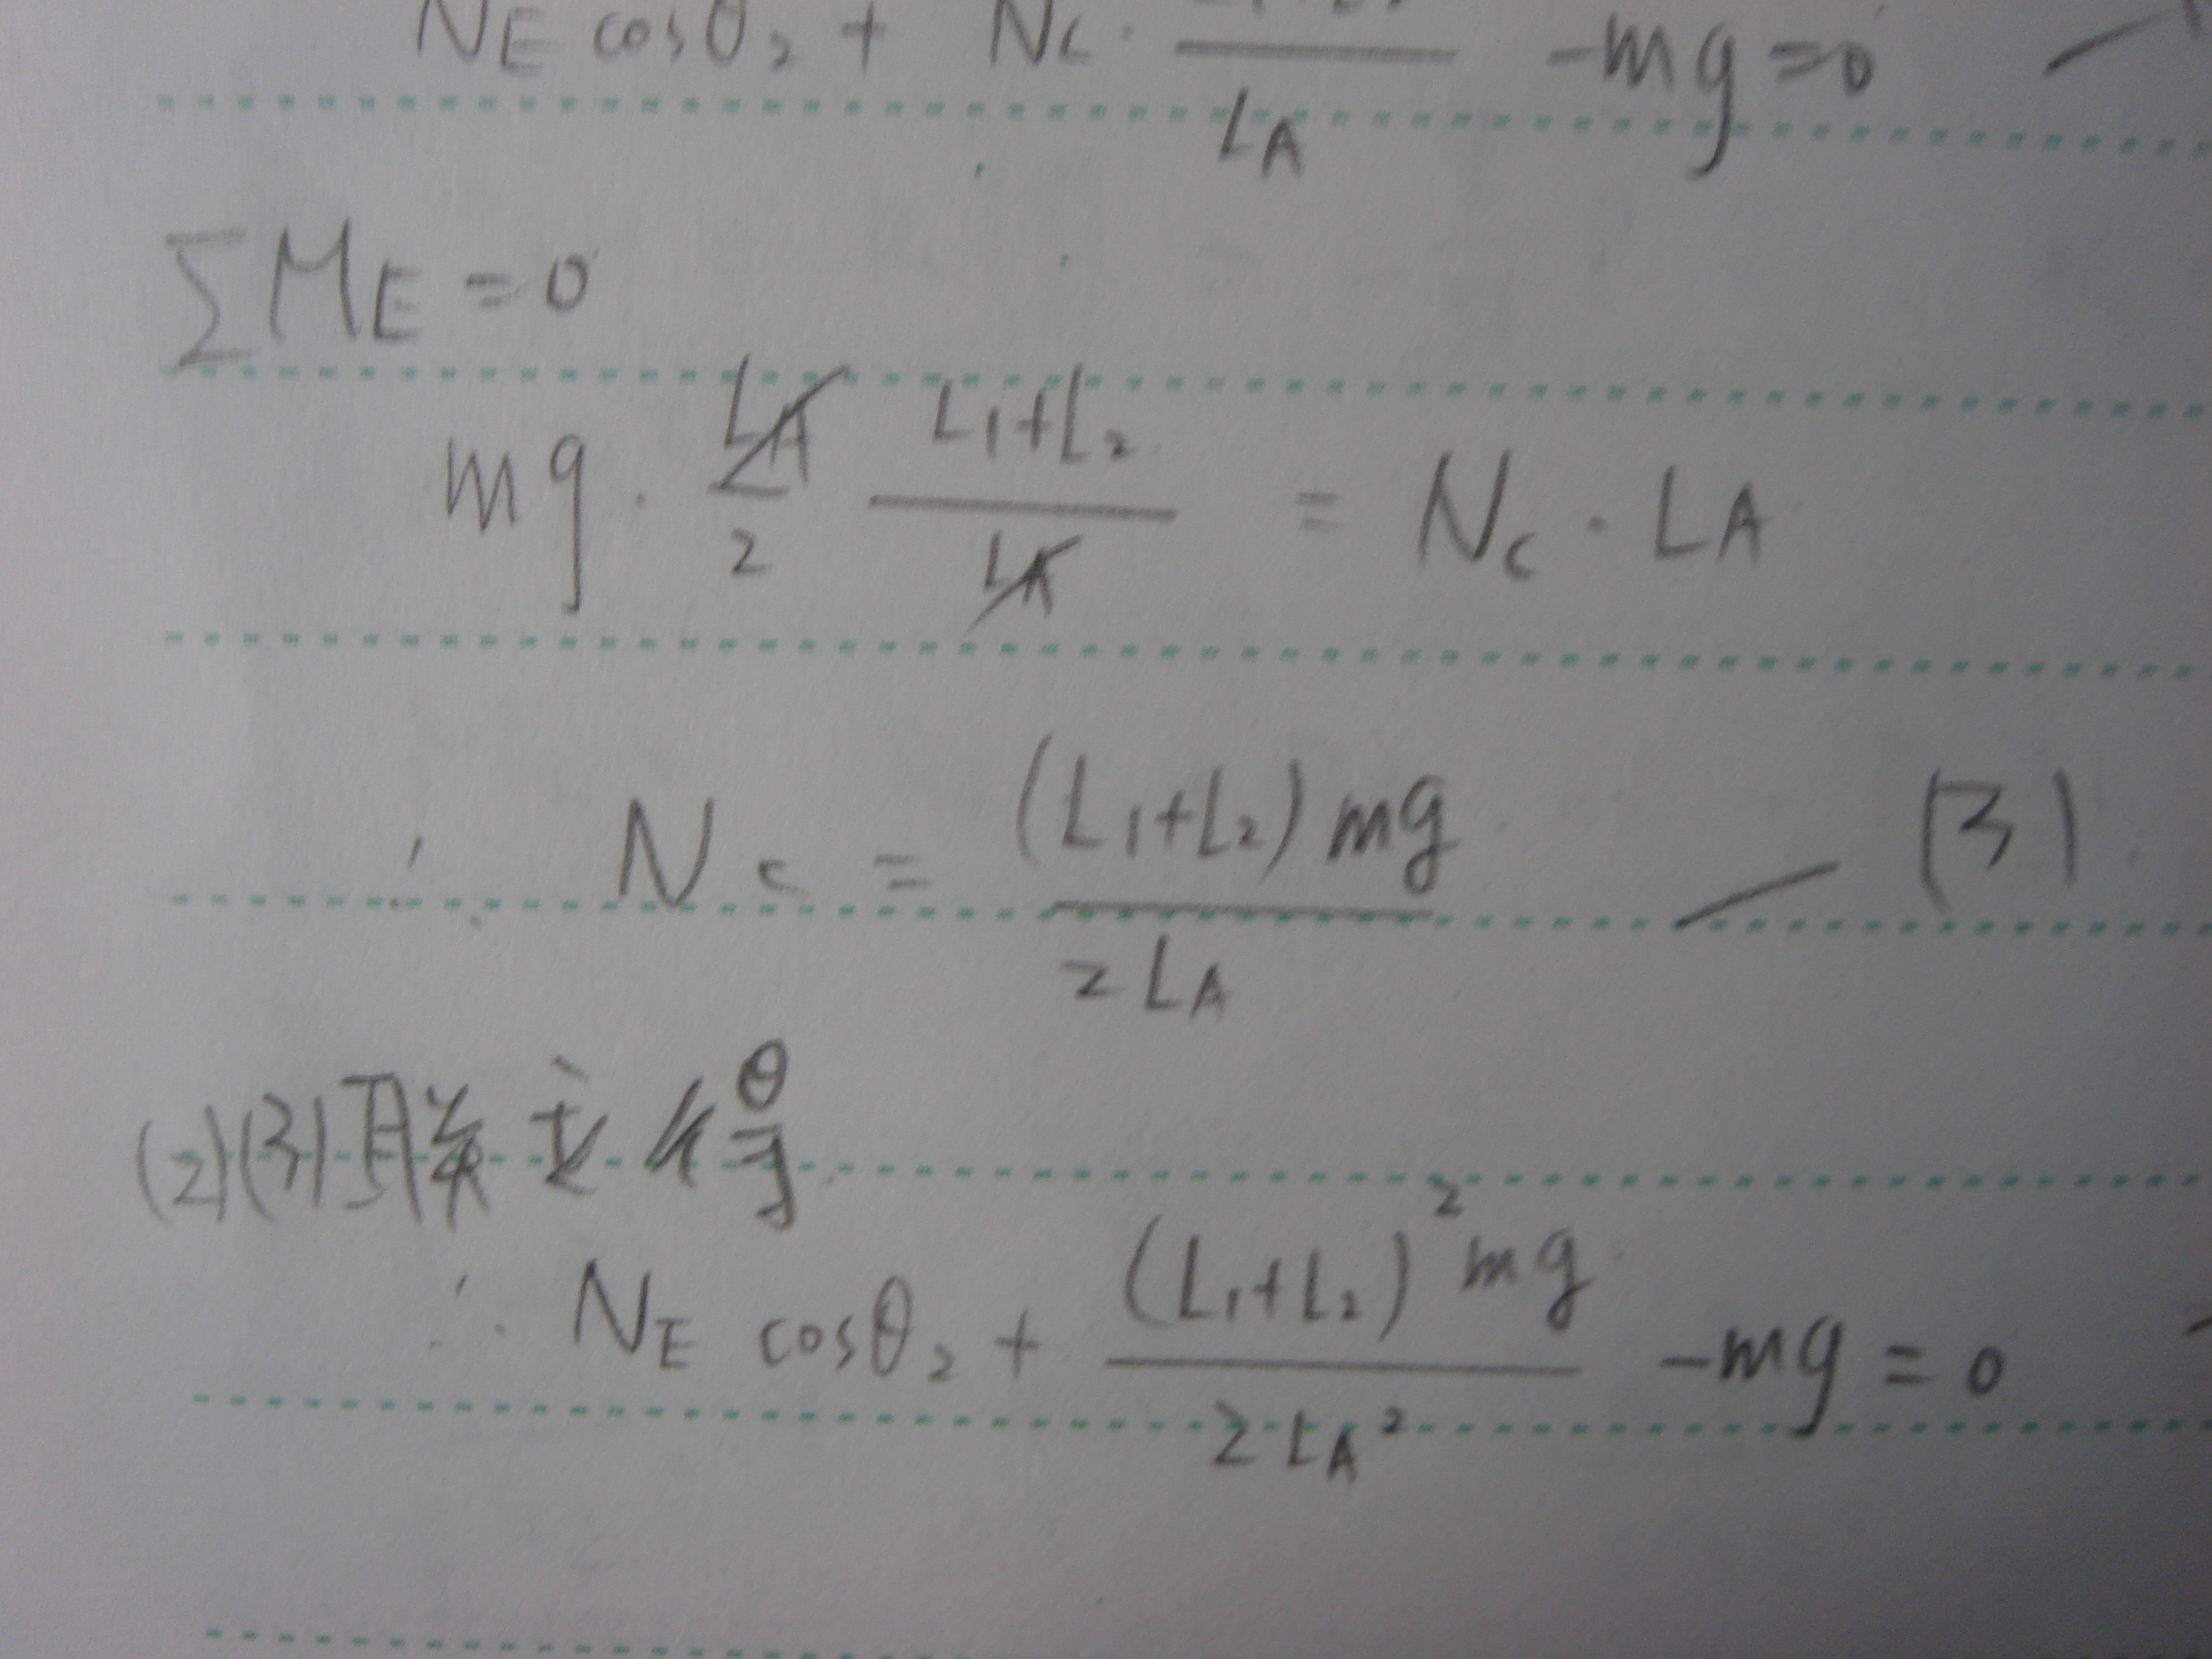 N_E cosθ₂ + N_C · ―― / L_A - mg = 0 —
ΣM_E = 0
mg · L_A/2 (L₁+L₂)/L_A = N_C · L_A
∴ N_C = (L₁+L₂)mg / 2L_A — (3)
(2)(3)联立得
∴ N_E cosθ₂ + (L₁+L₂)²mg / 2L_A² - mg = 0